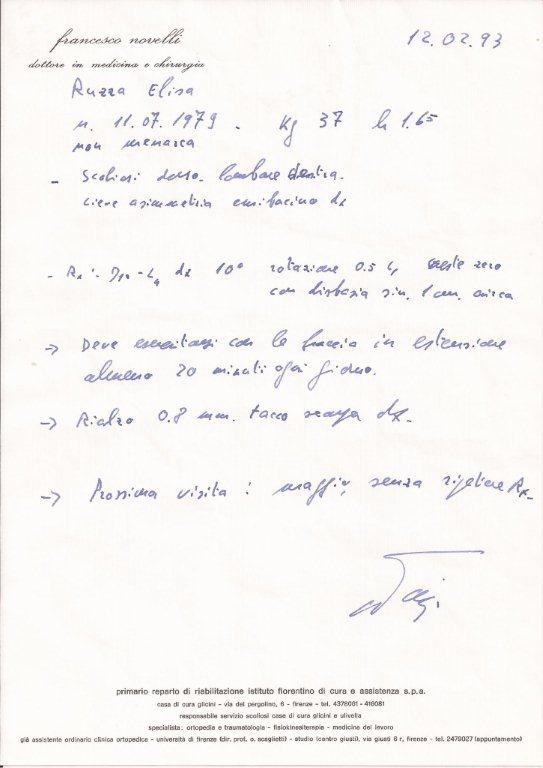 francesco novelli
dottore in medicina e chirurgia
12.02.93
Ruzza Elisa
n. 11.07.1979 - Kg 37 h 1.65
non menarca
- Scoliosi dorso-lombare destra.
Lieve asimmetria emibacino dx
- Rx: D12-L4 dx 10° rotazione 0.5 zero
con disbasia sin. 1 cm. circa
-> Deve esercitarsi con le braccia in estensione
almeno 20 minuti ogni giorno.
-> Rialzo 0.8 mm. tacco scarpa dx.
-> Prossima visita: maggio, senza ripetere Rx-
primario reparto di riabilitazione istituto fiorentino di cura e assistenza s.p.a.
casa di cura glicini - via del pergolino, 6 - firenze - tel. 4376061 - 416081
responsabile servizio scoliosi case di cura glicini e ulivella
specialista: ortopedia e traumatologia - fisiokinesiterapia - medicina del lavoro
già assistente ordinario clinica ortopedica - università di firenze (dir. prof. o. scaglietti) - studio (centro giusti), via giusti 6 r, firenze - tel. 2479027 (appuntamento)